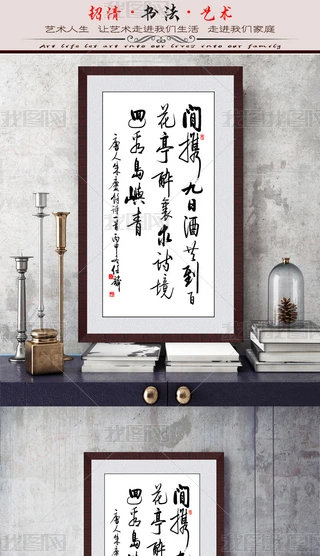 超清·书法·艺术
艺术人生 让艺术走进我们生活 走进我们家庭
Art life let art into our lives into our family
闲携九日酒共到百
花亭醉里求诗境
四看岛屿青
唐人朱庆馀诗一首丙申
闲携
花亭
四看岛
唐人朱庆